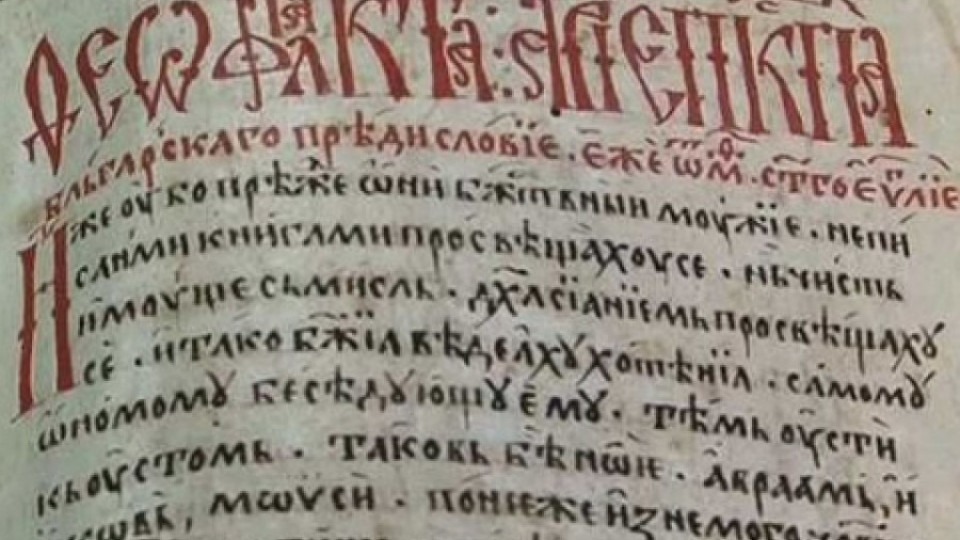 ѳеѡфѵлакта архїепⷭ҇кпа
бльгарскаго прѣдисловїе. єже ѿ мⷴ҇. ст҃го еѵⷢ҇лїе
Иже оубо прѣжⷣе ѡни бжⷭ҇твьнїи моужїе. не пи
слⷨними книгами просвѣщахоусе. нь чисть
имоуще сьмисль. дх҃а сїанїемь просвѣщаху
се. и тако бж҃їа вѣдеахꙋ хотѣнїа. самомꙋ
ѡномомꙋ бесѣдꙋющꙋ ѥмꙋ. тѣмь оусти
кь оустомь. таковь бѣ нѡѥ. авраамь, и
ѡвь, мѡѵси. понѥже изнемога